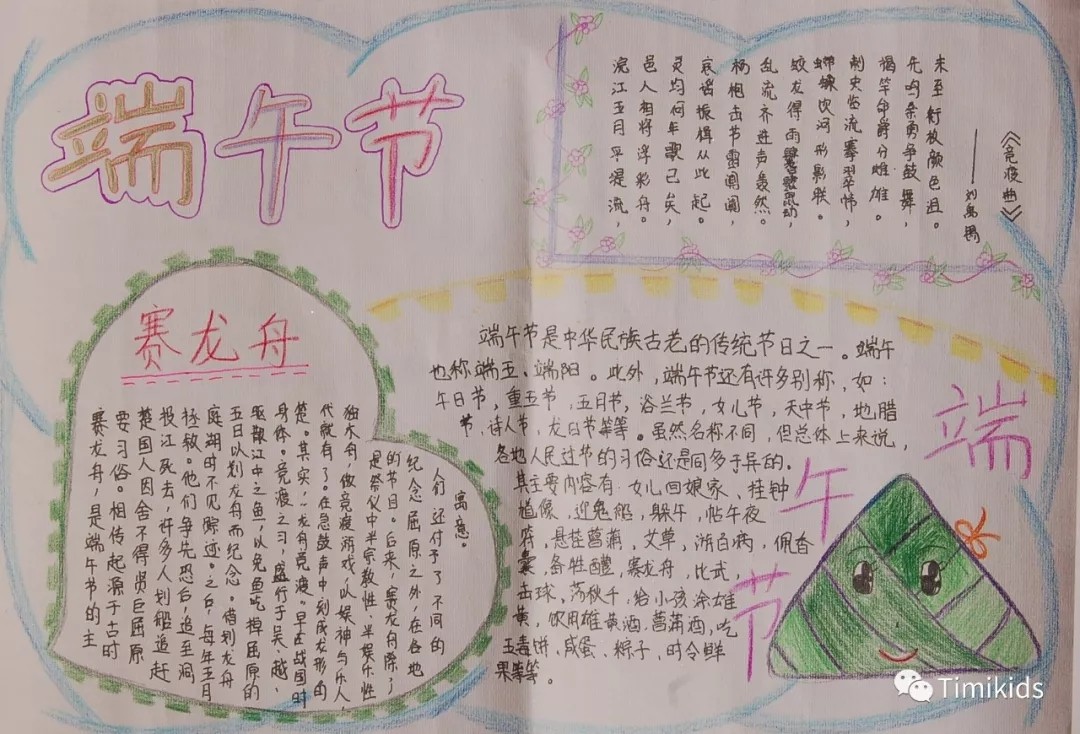 端午节
《竞渡曲》
刘禹锡
浣江五月平堤流，
邑人相将浮彩舟。
灵均何年歌已矣，
哀谣振楫从此起。
杨相击节雷阗阗，
乱流齐进声轰然。
蛟龙得雨鬐鬣动，
螮蝀饮河形影联。
刺史临流搴翠帏，
揭竿命爵分雌雄。
先鸣余勇争鼓舞，
未至衔枚颜色沮。
赛龙舟
赛龙舟，是端午节的主
要习俗。相传起源于古时
楚国人因舍不得贤臣屈原
投江死去，许多人划船追赶
拯救。他们争先恐后，追至洞
庭湖时不见踪迹。之后，每年五月
五日以划龙舟而纪念。借划龙舟
驱散江中之鱼，以免鱼吃掉屈原的
身体。竞渡之习，盛行于吴、越、
楚。其实，“龙舟竞渡”早在战国时
代就有了。在急鼓声中划成龙形的
独木舟，做竞渡游戏，以娱神与乐人，
是祭仪中半宗教性、半娱乐性
的节目。后来，赛龙舟除了
纪念屈原之外，在各地
人们还付予了不同的
寓意。
端午节是中华民族古老的传统节日之一。端午
也称端五、端阳。此外，端午节还有许多别称，如：
午日节，重五节，五月节，浴兰节，女儿节，天中节，地腊
节，诗人节，龙日节等等。虽然名称不同，但总体上来说，
各地人民过节的习俗还是同多于异的。
其主要内容有：女儿回娘家、挂钟
馗像，迎鬼船，躲午，帖午夜
符，悬挂菖蒲，艾草，游百病，佩香
囊，备牲醴，赛龙舟，比武，
击球，荡秋千，给小孩涂雄
黄，饮用雄黄酒，菖蒲酒，吃
五毒饼，咸蛋、粽子，时令鲜
果等等。
端午节
Timikids